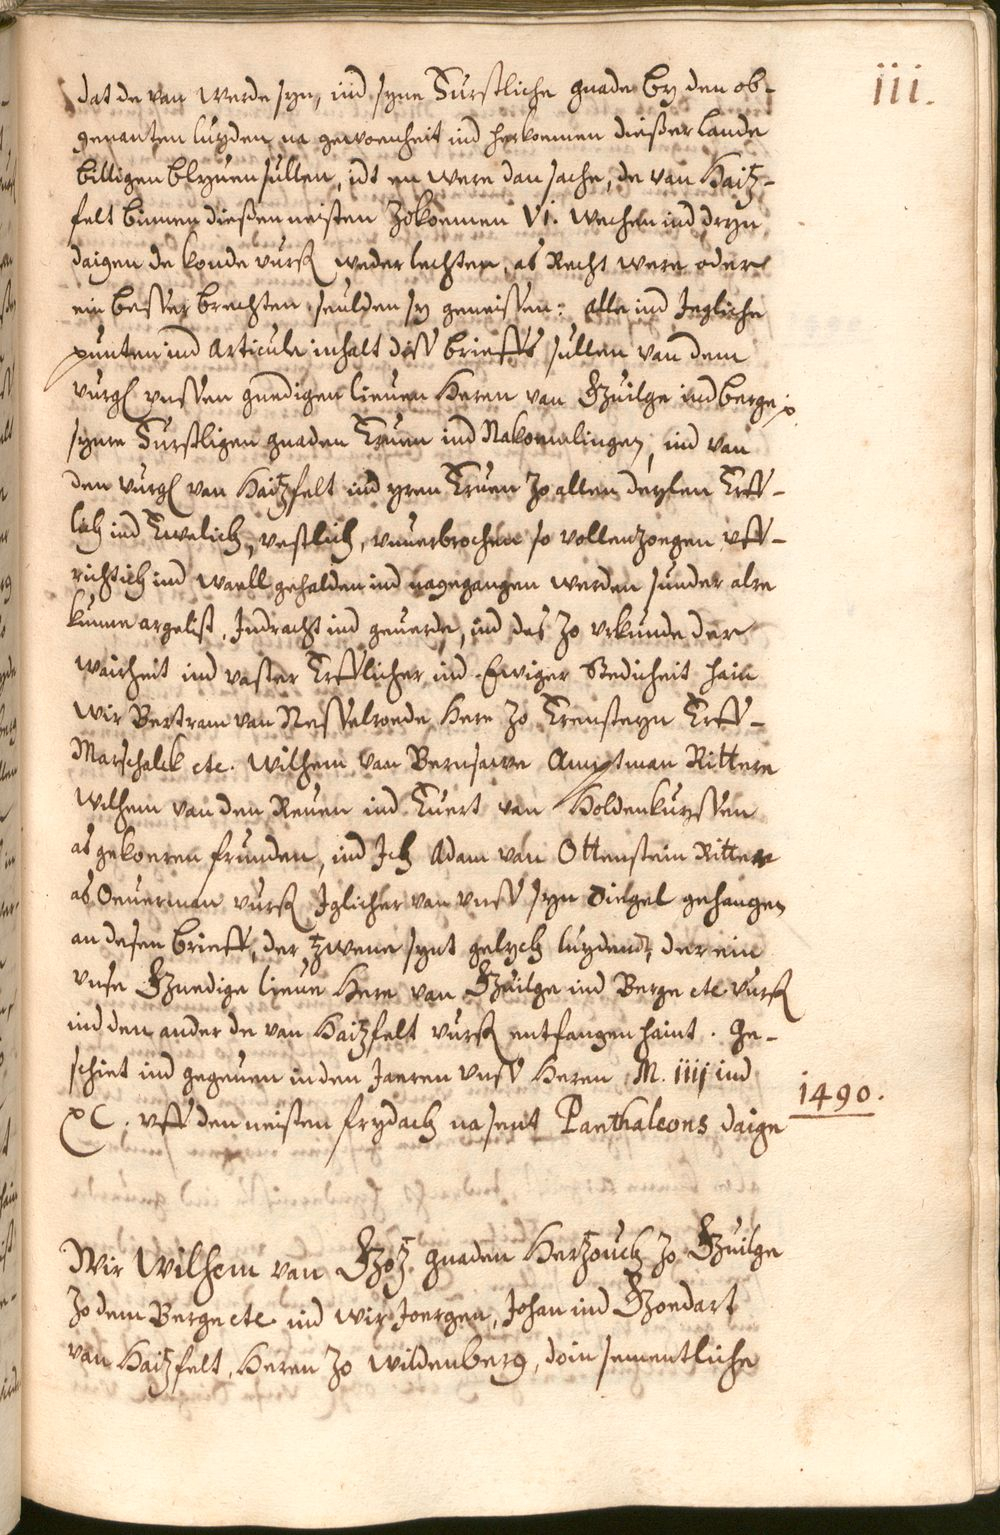 iii.
dat de van Werde syn, ind syne Furstliche gnade by den ob-
genanten luyden na gewoenheit ind herkoemen dießer Lande
billigen blyuen sullen, idt en were dan sache, de van Haitz-
felt binnen dießen neisten zokoemen Vi. Wechen ind dryn
daigen de konde vurß weder lechten, as Recht were oder
ein besser brechten, seulden sy geneissen: Alle ind Jegliche
punten ind Articule inhalt diss brieffs sullen van dem
vurgl vnssen gnedigen lieuen Heren van Guilge ind berge
synre Furstligen gnaden Eruen ind Nakomelingen, ind van
den vurgl van Haitzfelt ind yren Eruen zo allen deylen Erff-
lich ind Ewelich, vestlich, vnuerbrochen so vollenzoegen vff-
richtich ind waell gehalden ind nagegangen werden sunder alre
kunne argelist, Indracht ind geuerde, ind des zo vrkunde der
wairheit ind vaster Erfflicher ind Ewiger Stedicheit hain
Wir Bertram van Nesselroede Here zo Erensteyn Erff-
Marschalck etc. Wilhem van Bernsawe Amptman Rittere
Wilhem van den Reuen ind Euert van Holdenkuyssen
as gekoeren frunden, ind Ich Adam van Ottenstein Ritter
as Oeuerman vurß Iglicher van vnss syn Siegel gehangen
an desen brieff, der zwene synt gelych luydend, der ein
vnse Gnedige lieue Here van Guilge ind Berge etc vurß
ind den ander de van Haitzfelt vurß entfangen haint. Ge-
schiet ind gegeuen in den Jaeren vnss Heren M. iiij ind
XC. vff den neisten frydach na sent Panthaleons daige
1490.
Wir Wilhem van Gotz gnaden Hertzouch zo Guilge
zo dem Berge etc ind wir Joergen, Johan ind Goedart
van Haitzfelt, Heren zo Wildenberg, doin sementliche